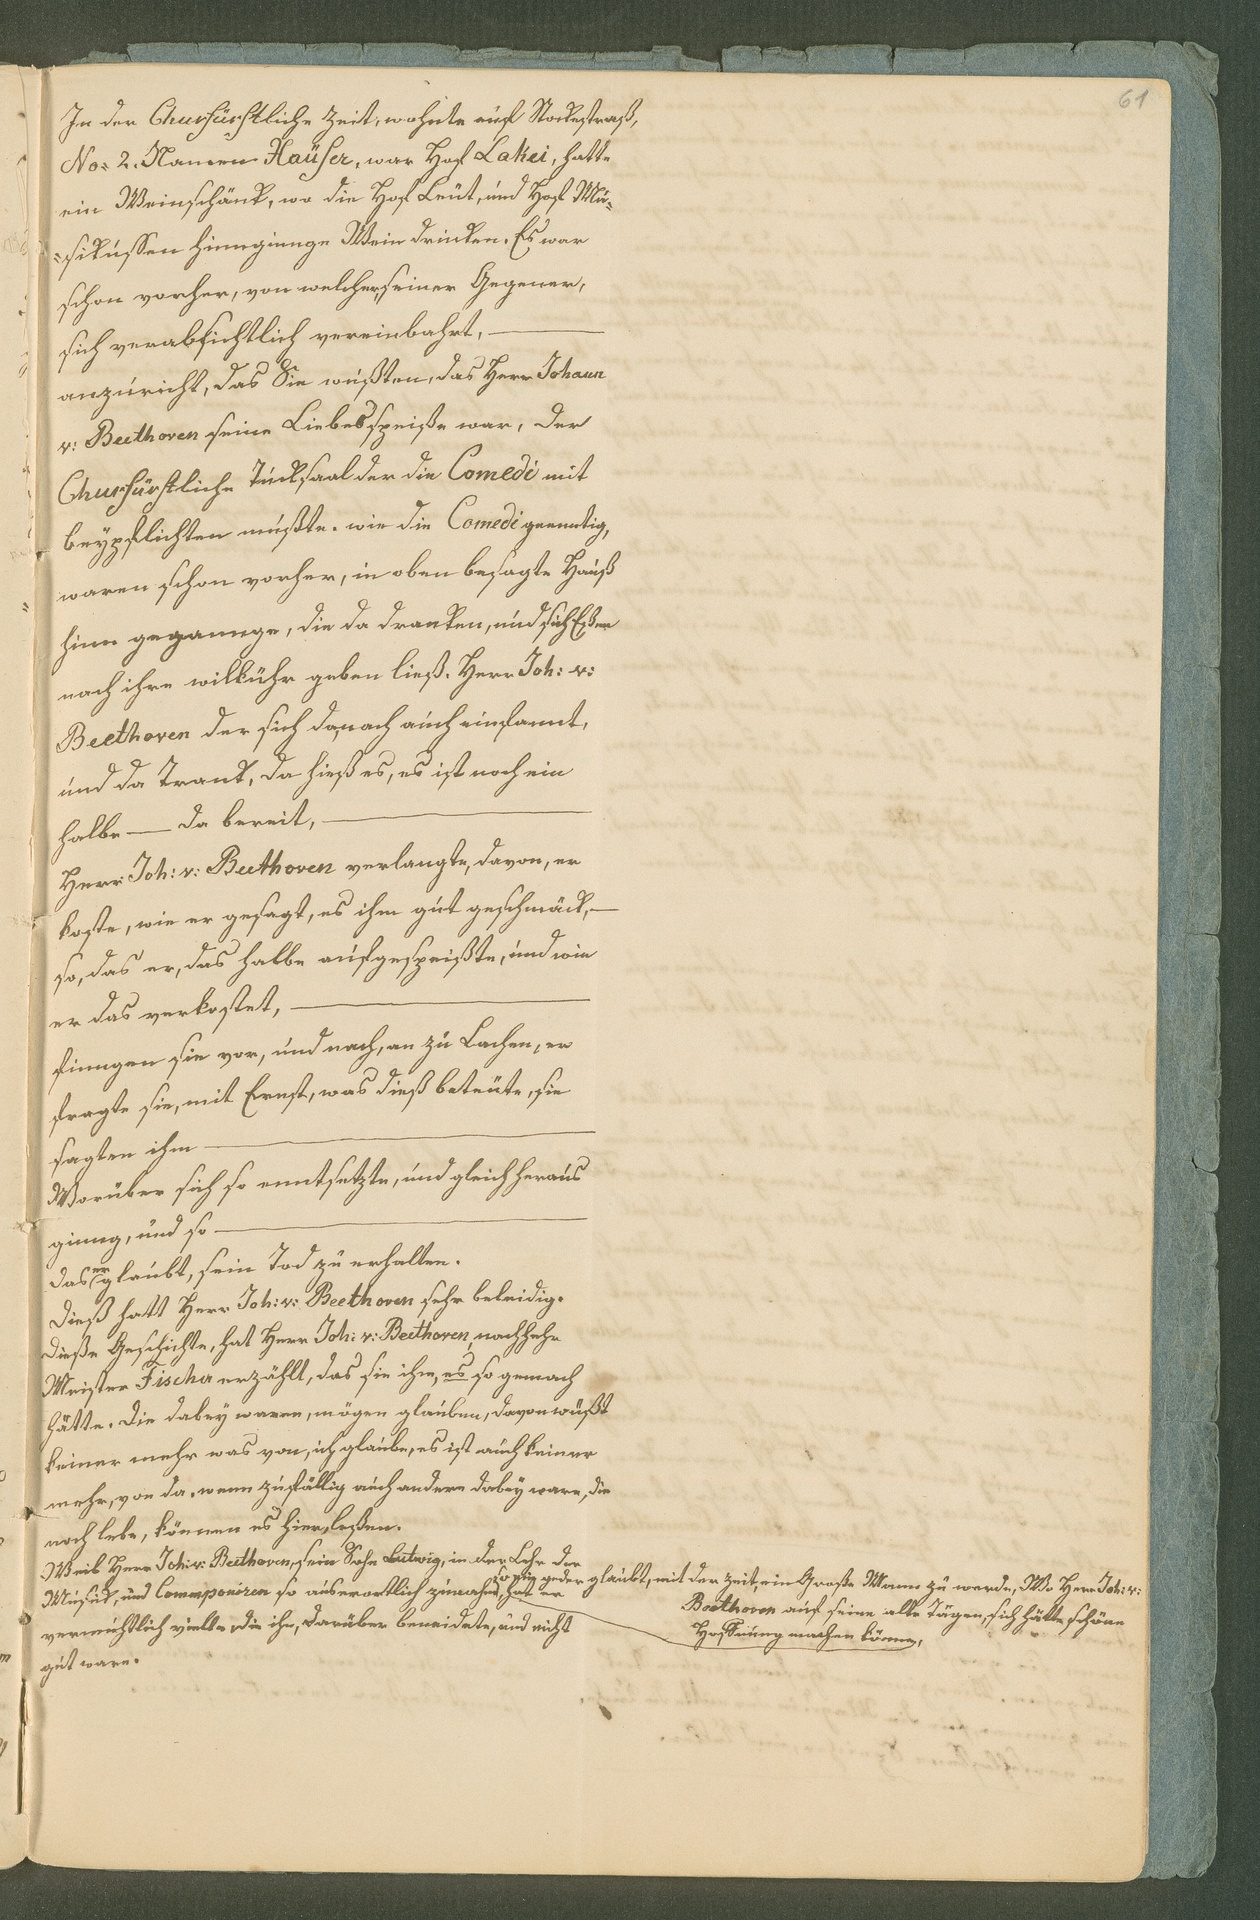 61
In der Churfürstliche Zeit, wohnte auf Stockestraß,
No: 2. Namen Haüser, war Hof Lakei, hatte
ein Weinschänk, wo die Hof Leüt, und Hof Mu-
-sikussen hinnginnge Wein drinken. Es war
schon vorher, von welcher, seiner Gegener,
sich verabsichtlich vereinbahrt, ———
anzuricht, das Sie wußten, das Herr Johann
v: Beethoven seine Liebesspeiße war, Der
Churfürstliche Tucksaal der die Comedi mit
beypflichten mußte. wie die Comedi geentig,
waren schon vorher, in oben besagte Hauß
hinn gegannge, die da dranken, und sich Eßen
nach ihre wilkühr geben ließ. Herr Joh: v:
Beethoven der sich danach auch einfannt,
und da Trank, da hieß es, es ist noch ein
halbe — da bereit, ———
Herr Joh: v: Beethoven verlangte, davon, er
koste, wie er gesagt, es ihm gut geschmäck, —
so, das er, das halbe aufgespeißte, und wie
er das verkostet, ———
finngen sie vor, und nach, an zu Lachen, er
fragte sie, mit Ernst, was dieß beteüte, sie
sagten ihm ———
Worüber sich so enntsetzte, und gleich heraus
ginng, und so ———
das er glaubt, sein Tod zu erhalten.
Dieß hatt Herr Joh: v: Beethoven sehr beleidig.
Dieße Geschichte, hat Herr Joh: v: Beethoven, nachhehr
Meister Fischer erzählt, das sie ihm, es so gemach
hätte. Die dabey ware, mögen glauben, davon wüßt
keiner mehr was von, ich glaube, es ist auch keiner
mehr, von da. wenn zufällig auch andere dabey ware, die
noch lebe, können es hier, leßen.
Weil Herr Joh: v: Beethoven, sein Sohn Lutwig, in der Lehr der
Musick, und Commponiren so auserortlich zunahm, hat er
so wie geder glaubt, mit der zeit, ein Große Mann zu werde, Wo Herr Joh: v:
Beethoven auf seine alte Tägen, sich hätte schöne
Hoffnung machen könne,
vermuhtlich vielle, die ihn, darüber beneidete, und nicht
gut ware.